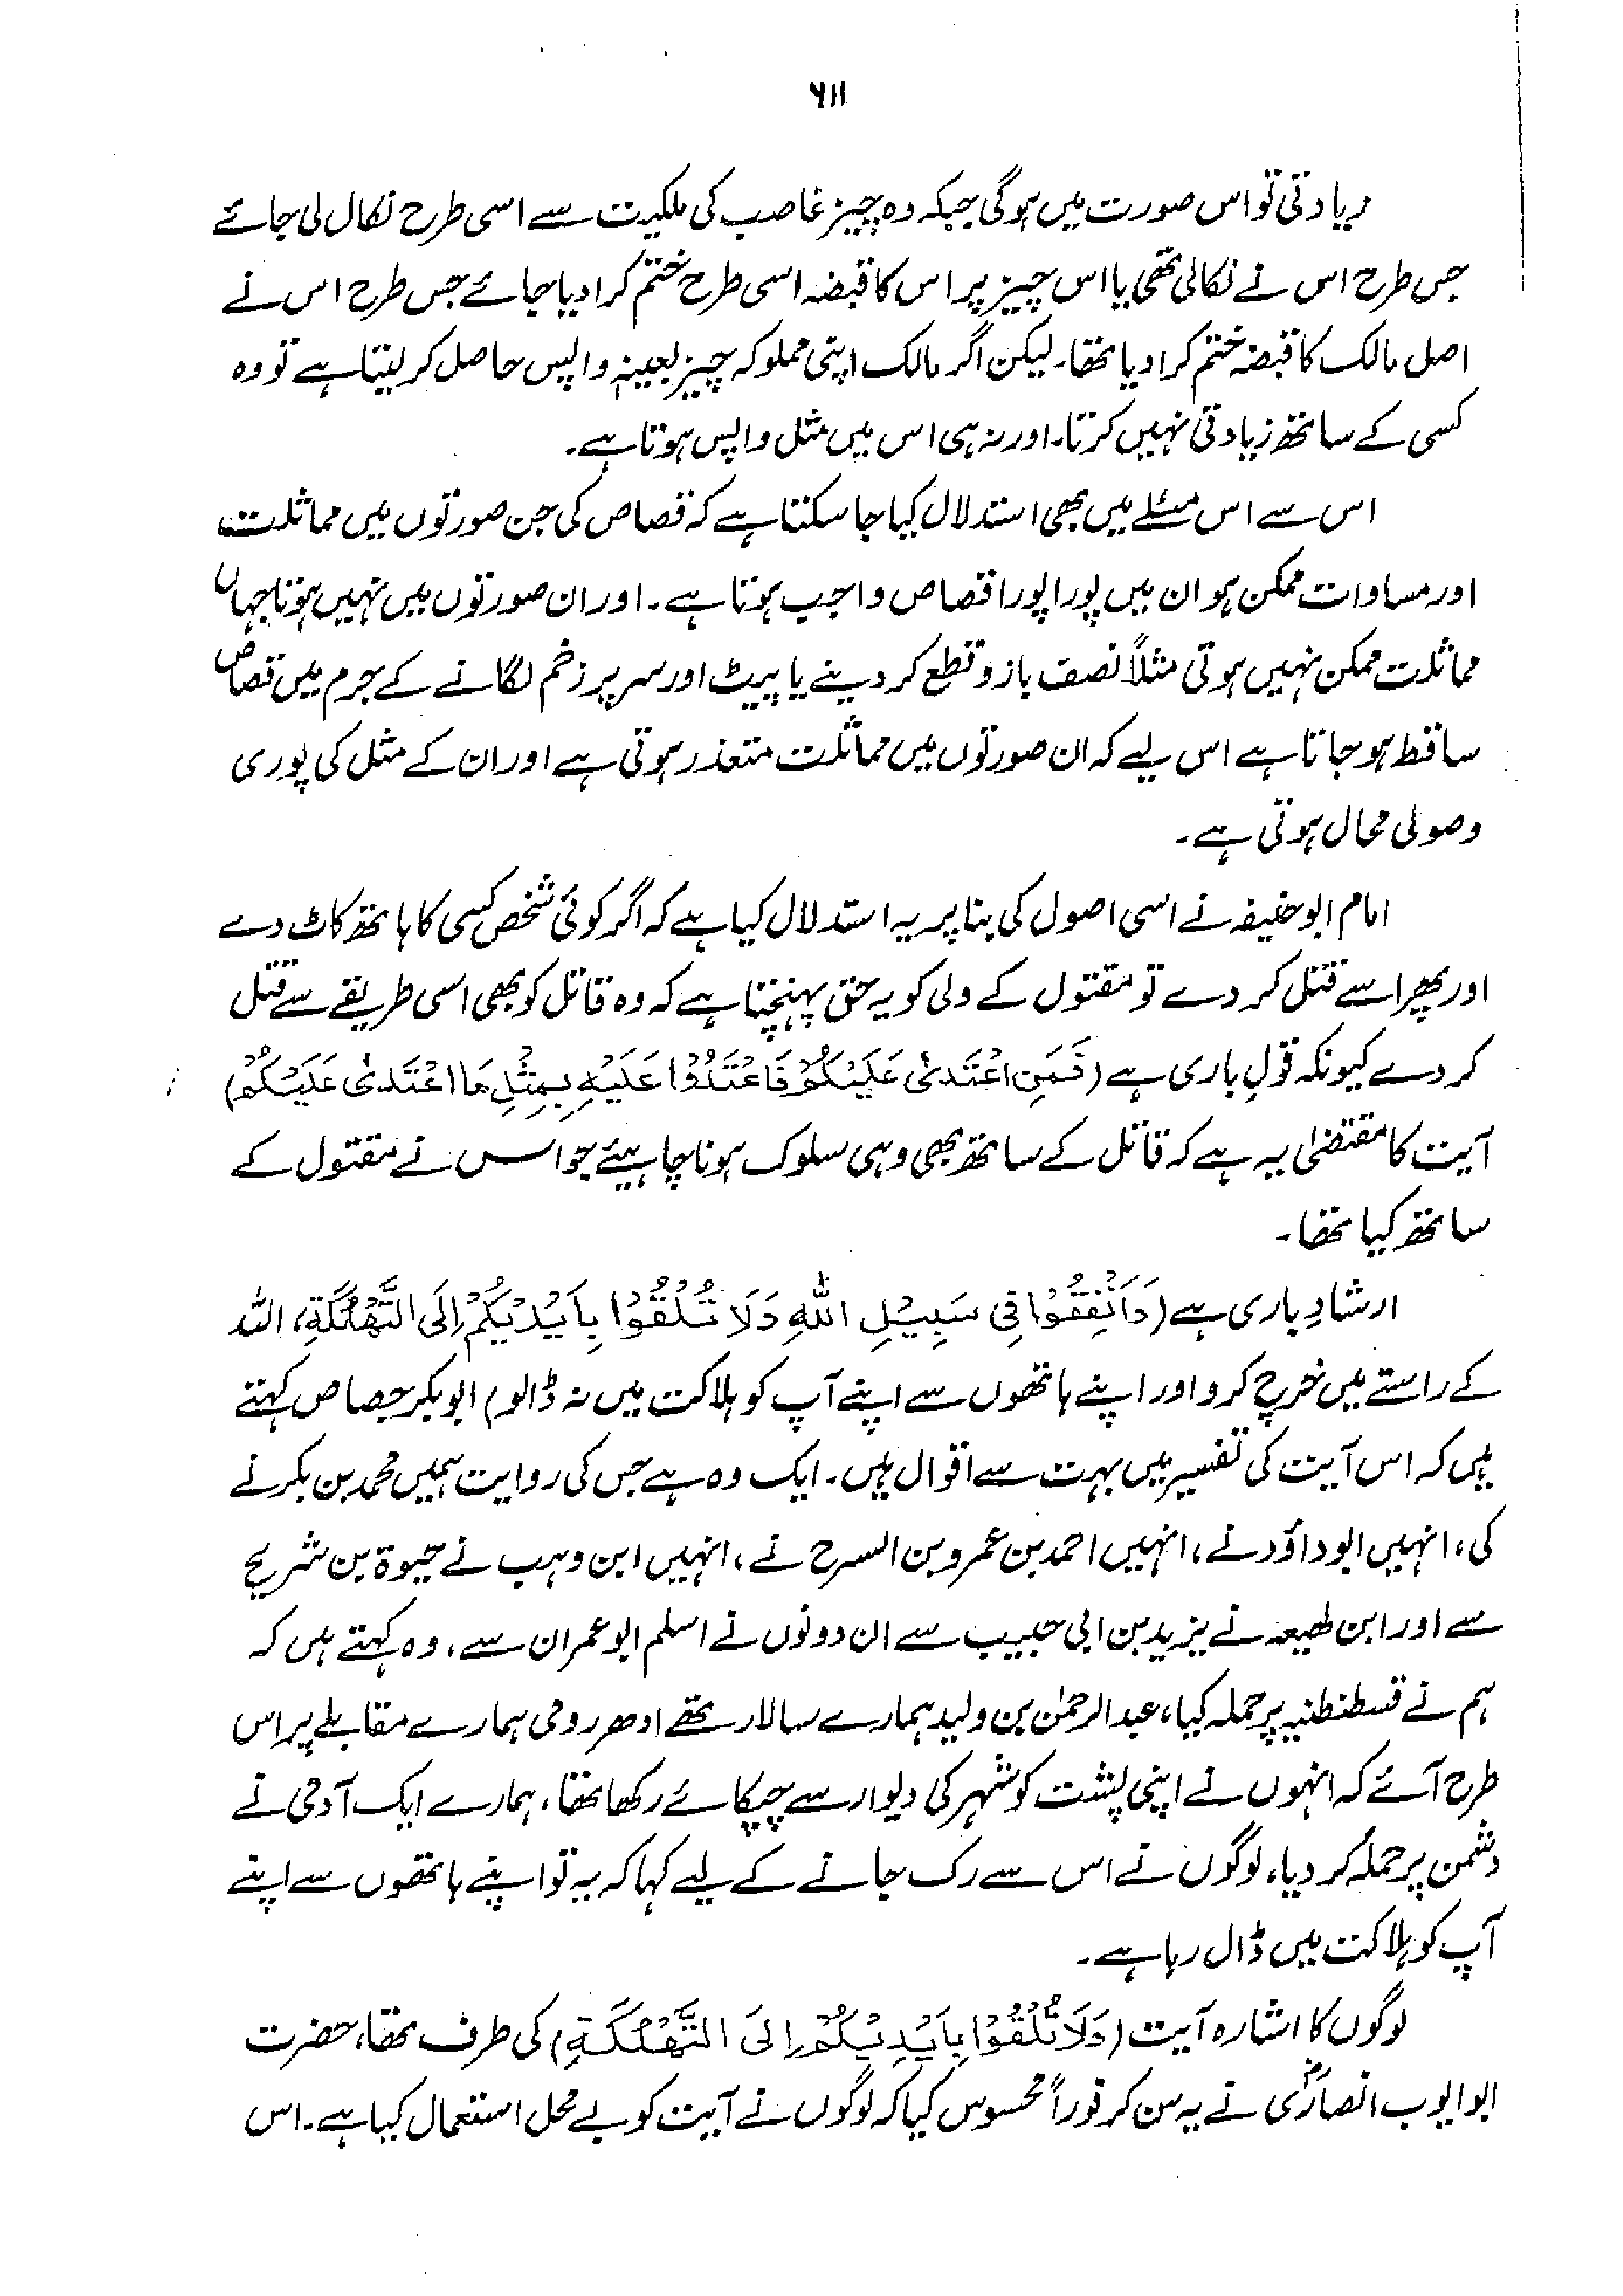 ۶۱۱
زیادتی تو اس صورت میں ہوگی جبکہ وہ چیز غاصب کی ملکیت سے اسی طرح نکال لی جائے
جس طرح اس نے نکالی تھی یا اس چیز پر اس کا قبضہ اسی طرح ختم کرا دیا جائے جس طرح اس نے
اصل مالک کا قبضہ ختم کرا دیا تھا۔ لیکن اگر مالک اپنی مملوکہ چیز بعینہٖ واپس حاصل کر لیتا ہے تو وہ
کسی کے ساتھ زیادتی نہیں کرتا۔ اور نہ ہی اس میں مثل واپس ہوتا ہے۔
اس سے اس مسئلے میں بھی استدلال کیا جا سکتا ہے کہ قصاص کی جن صورتوں میں مماثلت
اور مساوات ممکن ہو ان میں پورا پورا قصاص واجب ہوتا ہے۔ اور ان صورتوں میں نہیں ہوتا جہاں
مماثلت ممکن نہیں ہوتی مثلاً نصف بازو قطع کر دینے یا پیٹ اور سر پر زخم لگانے کے جرم میں قصاص
ساقط ہو جاتا ہے اس لیے کہ ان صورتوں میں مماثلت متعذر ہوتی ہے اور ان کے مثل کی پوری
وصولی محال ہوتی ہے۔
امام ابوحنیفہ نے اسی اصول کی بنا پر یہ استدلال کیا ہے کہ اگر کوئی شخص کسی کا ہاتھ کاٹ دے
اور پھر اسے قتل کر دے تو مقتول کے ولی کو یہ حق پہنچتا ہے کہ وہ قاتل کو بھی اسی طریقے سے قتل
کر دے کیونکہ قولِ باری ہے (فَمَنِ اعْتَدٰی عَلَیْکُمْ فَاعْتَدُوْا عَلَیْہِ بِمِثْلِ مَا اعْتَدٰی عَلَیْکُمْ)
آیت کا مقتضیٰ یہ ہے کہ قاتل کے ساتھ بھی وہی سلوک ہونا چاہیئے جو اس نے مقتول کے
ساتھ کیا تھا۔
ارشادِ باری ہے (وَاَنْفِقُوْا فِی سَبِیْلِ اللّٰہِ وَلَا تُلْقُوْا بِاَیْدِیْکُمْ اِلَی التَّھْلُکَۃِ، اللہ
کے راستے میں خرچ کرو اور اپنے ہاتھوں سے اپنے آپ کو ہلاکت میں نہ ڈالو) ابوبکر جصاص کہتے
ہیں کہ اس آیت کی تفسیر میں بہت سے اقوال ہیں۔ ایک وہ ہے جس کی روایت ہمیں محمد بن بکر نے
کی، انہیں ابوداؤد نے، انہیں احمد بن عمرو بن السرح نے، انہیں ابن وہب نے حیوۃ بن شریح
سے اور ابن لھیعہ نے یزید بن ابی حبیب سے ان دونوں نے اسلم ابو عمران سے، وہ کہتے ہیں کہ
ہم نے قسطنطنیہ پر حملہ کیا، عبدالرحمٰن بن ولید ہمارے سالار تھے ادھر رومی ہمارے مقابلے پر اس
طرح آئے کہ انہوں نے اپنی پشت کو شہر کی دیوار سے چپکائے رکھا تھا، ہمارے ایک آدمی نے
دشمن پر حملہ کر دیا، لوگوں نے اس سے رک جانے کے لیے کہا کہ یہ تو اپنے ہاتھوں سے اپنے
آپ کو ہلاکت میں ڈال رہا ہے۔
لوگوں کا اشارہ آیت (وَلَا تُلْقُوْا بِاَیْدِیْکُمْ اِلَی التَّھْلُکَۃِ) کی طرف تھا، حضرت
ابو ایوب انصاریؓ نے یہ سن کر فوراً محسوس کیا کہ لوگوں نے آیت کو بے محل استعمال کیا ہے۔ اس